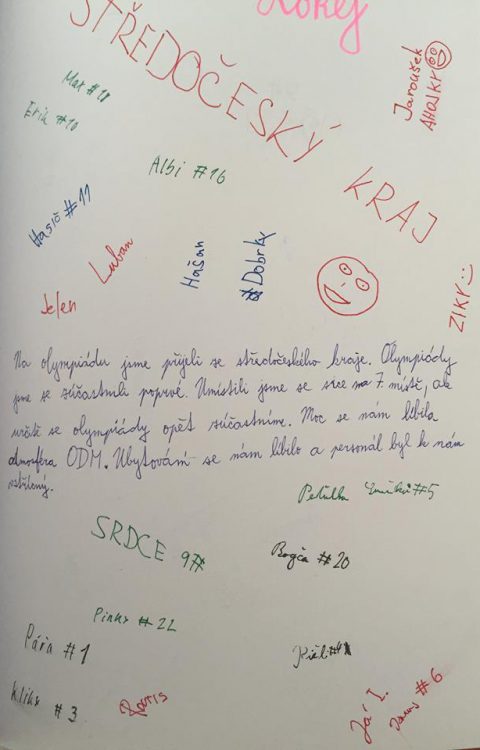 Hokej
STŘEDOČESKÝ KRAJ
Jaroušek
AHOJKY
Max #18
Erik #10
Albi #16
Hasič #11
Luban
Hašan
#Dobrky
Jelen
ZIKY :)
Na olympiádu jsme přijeli ze středočeského kraje. Olympiády
jsme se zúčastnili poprvé. Umístili jsme se sice na 7. místě, ale
určitě se olympiády opět zúčastníme. Moc se nám líbila
atmosféra ODM. Ubytování se nám líbilo a personál byl k nám
vstřícný.
#5
SRDCE 9#
Bogča #20
Pinky #22
Pára #1
Kliky #3
Boris
Já I.
#6